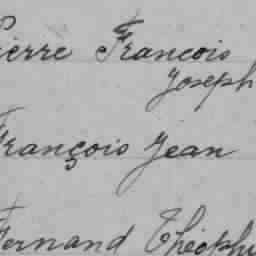 Pierre Francois
Joseph
François Jean
Fernand Théophi